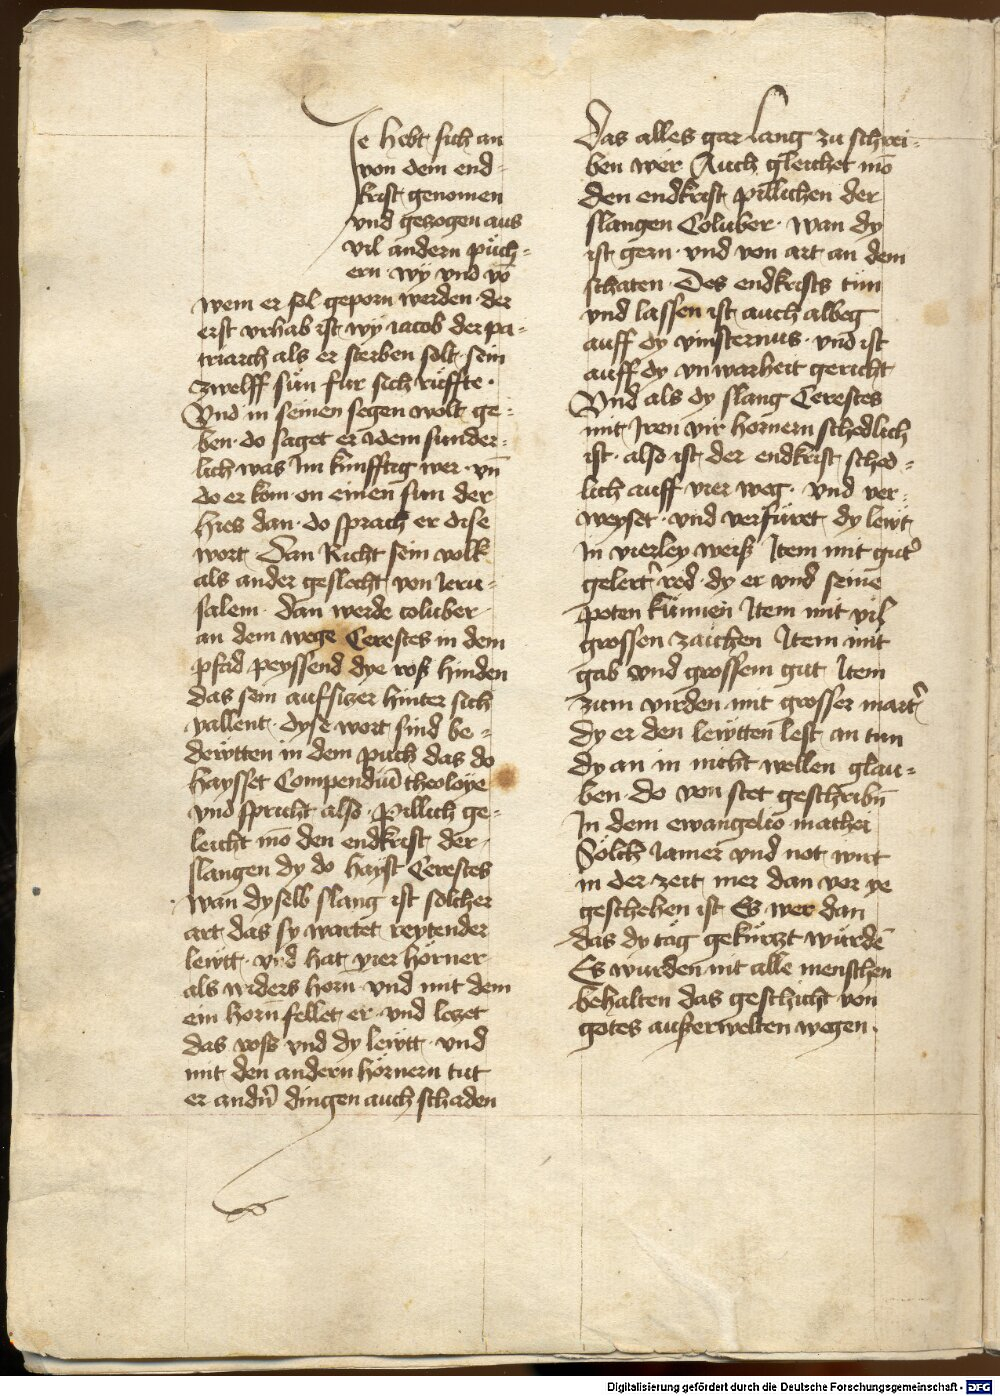 Je hebt sich an
von dem end-
krist genomen
vnd gezogen aus
vil andern püch-
ern · wÿ vnd vō
wem er sol geporn werden · der
erst vrhab ist wÿ iacob der pa-
triarch als er sterben solt · sein
zwelff sün fur sich rüffte ·
Vnd in seinen segen wolt ge-
ben · do saget er idem sunder-
lich was im kunfftig wer · vn̄
do er kom · on einen sun der
hies dan · do sprach er dise
wort · Dan Richt sein volk
als ander geslecht von Ieru-
salem · Dan werde coluber ·
an dem wege Cerestes in dem
pfad peyssend dye roß hinden
das sein auffsizer hinter sich
vallent · dyse wort sind be-
dewtten in dem puch das do
haysset Compendiū theoloye
vnd spricht also · Pillich ge-
leicht mō den endkrist der
slangen dy do hayst Cerestes
wan dyselb slang ist solcher
art das sy wartet reytender
lewtt · vnd hat vier hörner
als widers horn · vnd mit dem
ein horn fellet er · vnd lezet
das ross vnd dy lewtt · vnd
mit den andern hörnern tut
er andn̄ dingen auch schaden
Das alles gar lang zu schrei-
ben wer · Auch gleichet mō
den endkrist pillichen der
slangen Coluber · wan dy
ist gern · vnd von art an dem
schaten · Des endkrists tün
vnd lassen ist auch albeg
auff dy vinsternus · vnd ist
auff dy vnwarheit gericht
Vnd als dy slang Cerestes
mit iren vir hornern schedlich
ist · also ist der endkrist sched-
lich auff vier weg · vnd ver-
weyset · vnd verfüret dy lewt
In vierley weiß Item mit gut̄
gelert̄ red · dy er vnd seine
poten künnen Item mit vil
grossen zaichen Item mit
gab vnd grossem gut Item
zum virden mit grosser mart̄
dy er den lewtten lest an tun
dy an in nicht wellen glau-
ben · do von stet geschribn̄
In dem ewangelio mathei
Sölch iamer vnd not wirt
in der zeit mer dan vor ye
geschehen ist Es wer dan
das dy täg gekürtzt würdē
Es wurden nit alle menschen
behalten das geschicht von
gotes außerwelten wegen ·
Digitalisierung gefördert durch die Deutsche Forschungsgemeinschaft - DFG